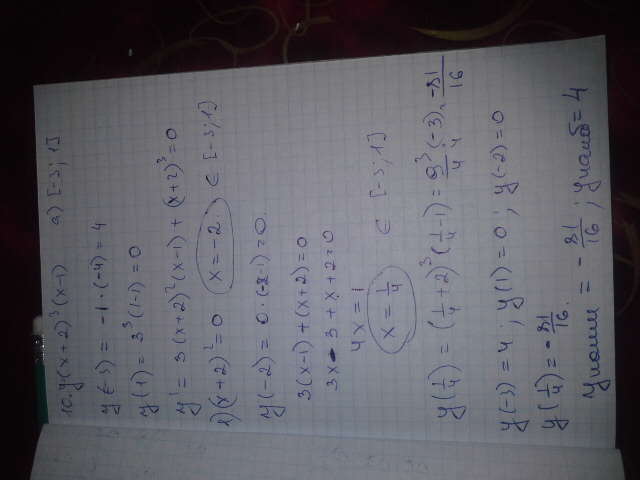 10. y=(x+2)³(x-1) a) [-3; 1]
y(-3) = -1 · (-4) = 4
y(1) = 3³(1-1) = 0
y' = 3(x+2)²(x-1) + (x+2)³ = 0
1) (x+2)² = 0 x = -2. ∈ [-3; 1]
y(-2) = 0 · (-2-1) = 0.
3(x-1) + (x+2) = 0
3x - 3 + x + 2 = 0
4x = 1
x = 1/4 ∈ [-3; 1]
y(1/4) = (1/4 + 2)³ (1/4 - 1) = 9³/4 · (-3)/4 = -81/16
y(-3) = 4 ; y(1) = 0 ; y(-2) = 0
y(1/4) = -81/16.
yнаим = -81/16 ; yнаиб = 4